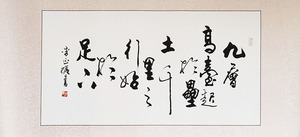 九層
高臺起
於壘
土千
里之
行始
於
足下